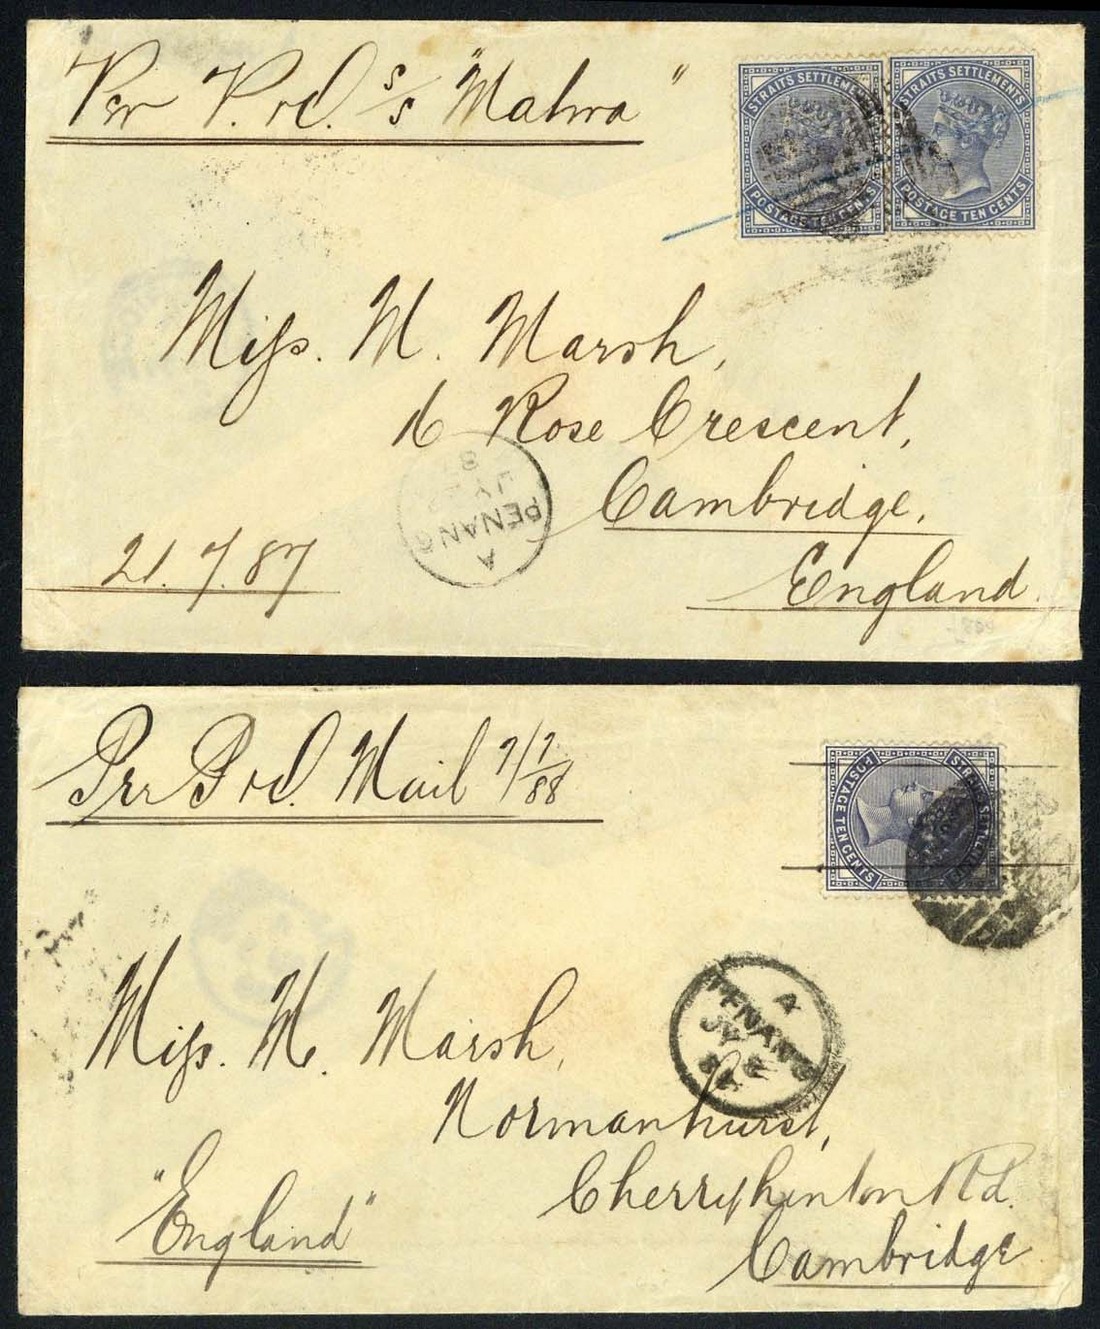 Per P. & O. S/S "Malwa"
STRAITS SETTLEMENTS
POSTAGE TEN CENTS
STRAITS SETTLEMENTS
POSTAGE TEN CENTS
Miss. M. Marsh,
6 Rose Crescent,
Cambridge,
England.
21.7.87
A
PENANG
JY
87
Per P & O. Mail 7/7/88
STRAITS SETTLEMENTS
POSTAGE TEN CENTS
A
PENANG
JY
88
Miss. M. Marsh,
Normanhurst,
Cherryhinton Rd.
Cambridge
"England"